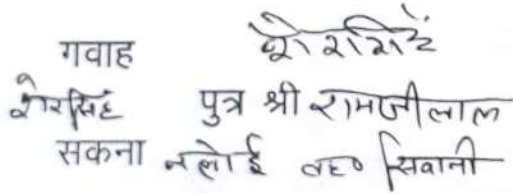 गवाह शेरसिंह
शेरसिंह पुत्र श्री रामजीलाल
सकना नलोई तह० सिवानी